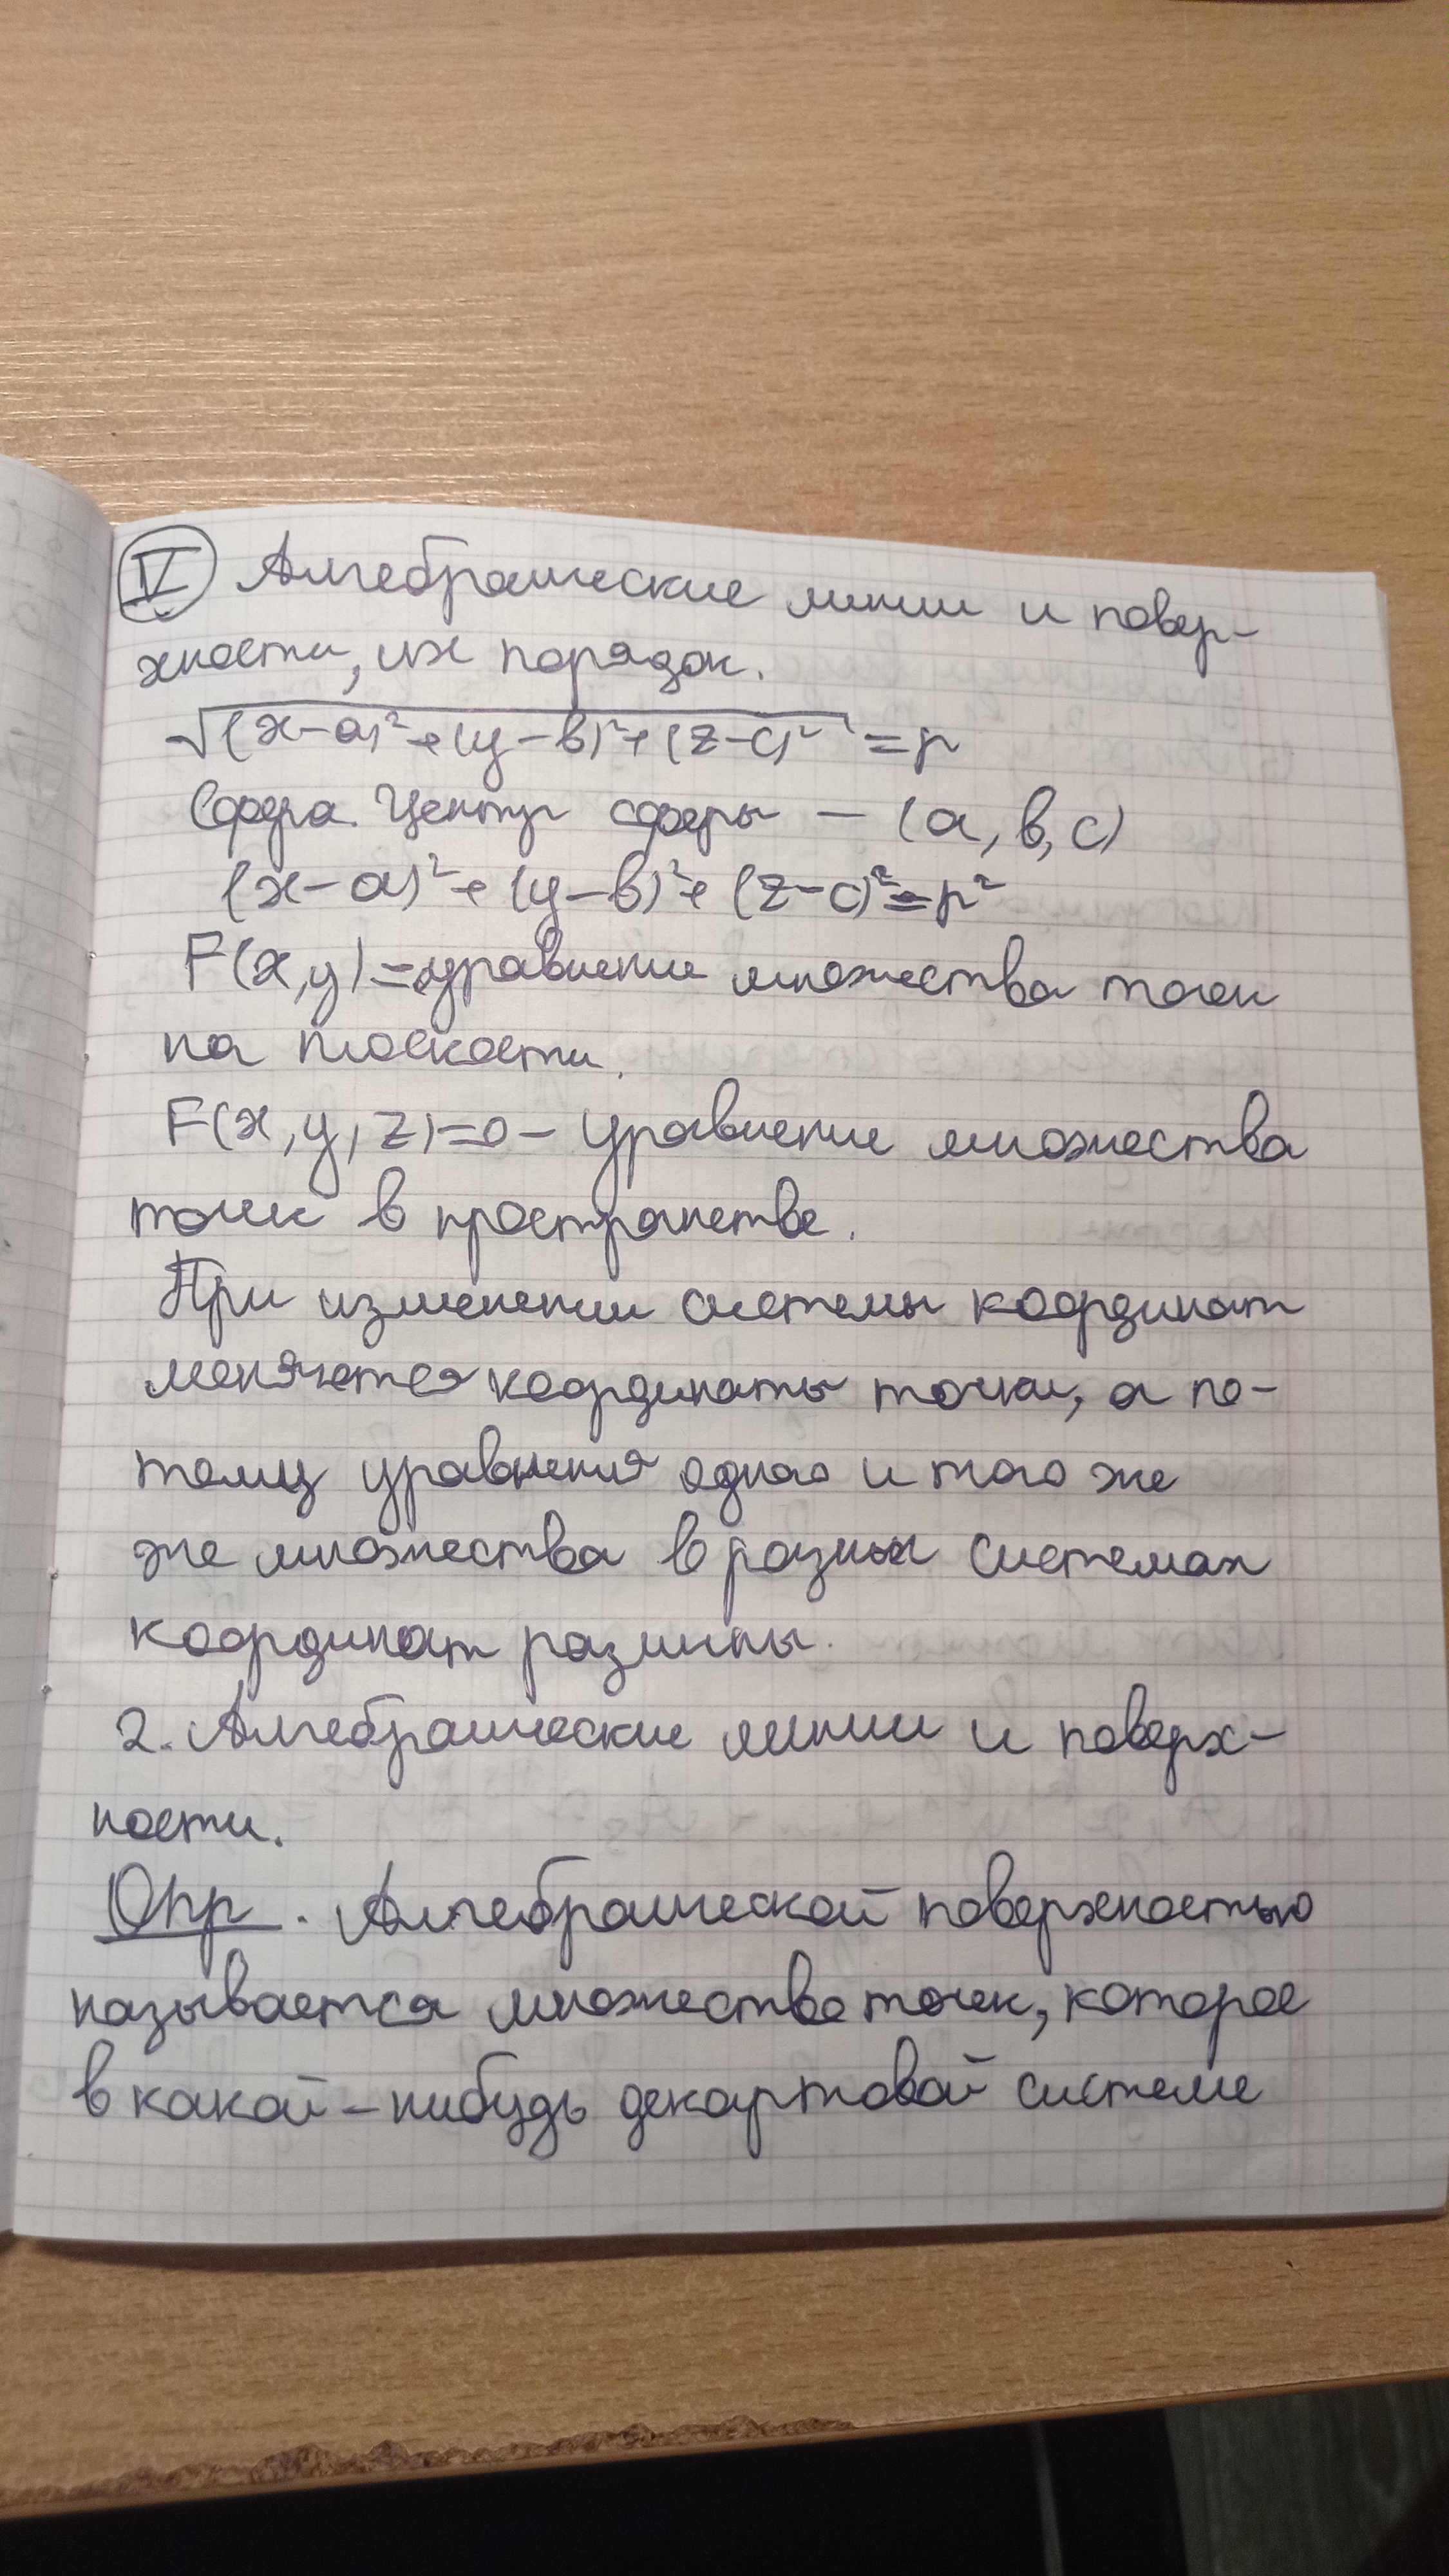 IV Алгебраические линии и повер-
хности, их порядок.
√(x-a)²+(y-b)²+(z-c)² = r
Сфера. Центр сферы – (a, b, c)
(x-a)²+(y-b)²+(z-c)²=r²
F(x,y)=уравнение множества точек
на плоскости.
F(x, y, z)=0 – уравнение множества
точек в пространстве.
При изменении системы координат
меняются координаты точки, а по-
тому уравнения одного и того же
же множества в разных системах
координат различны.
2. Алгебраические линии и поверх-
ности.
Опр. Алгебраической поверхностью
называется множество точек, которое
в какой-нибудь декартовой системе